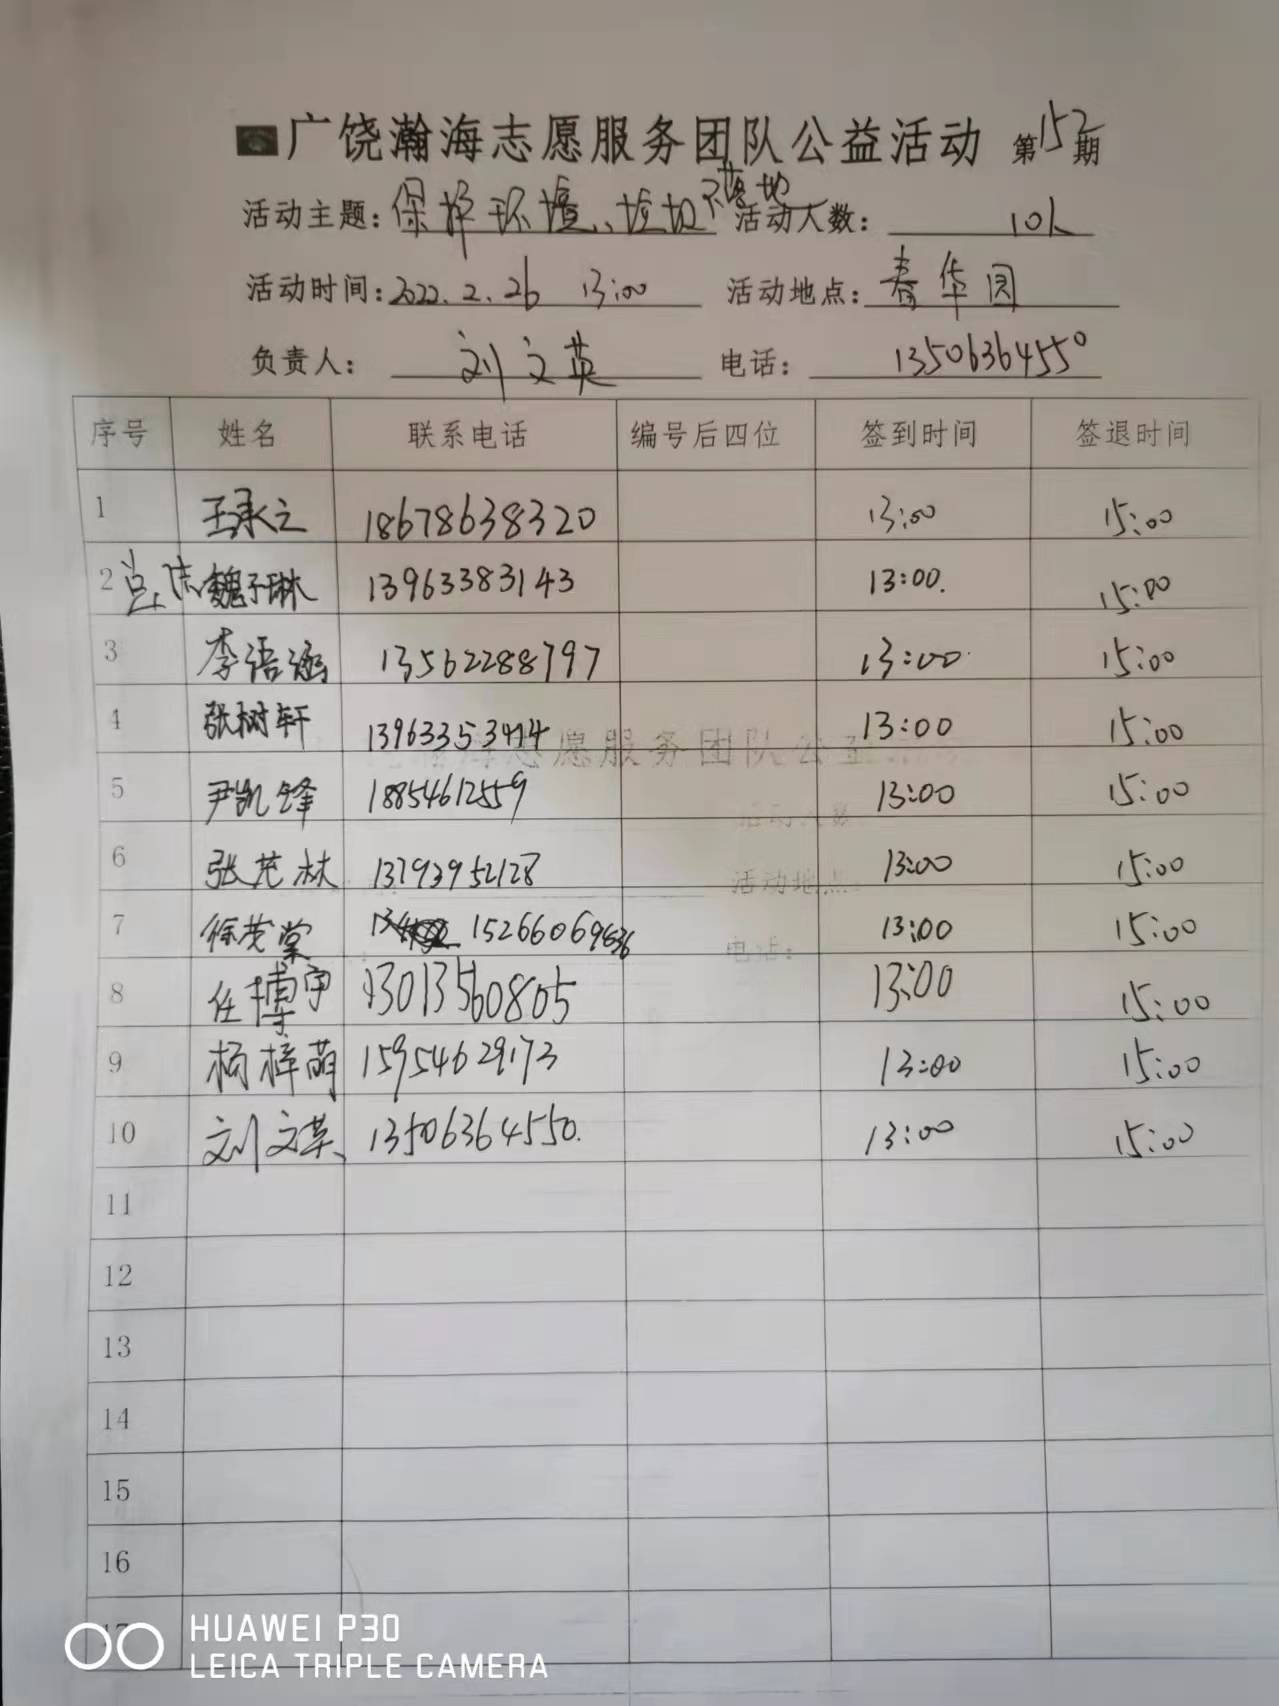 广饶瀚海志愿服务团队公益活动 第152期
活动主题: 保护环境、垃圾不落地 活动人数: 10人
活动时间: 2022.2.26 13:00 活动地点: 春华园
负责人: 刘文英 电话: 13506364550
序号 姓名 联系电话 编号后四位 签到时间 签退时间
1 王承之 18678638320 13:00 15:00
2 魏子琳 13963383143 13:00. 15:00
3 李语涵 13562288797 13:00 15:00
4 张树轩 13:00 15:00
5 尹凯锋 18854612559 13:00 15:00
6 张茂林 13793952128 13:00 15:00
7 徐茂棠 13:00 15:00
8 任博宇 13013560805 13:00 15:00
9 杨梓萌 15954629173 13:00 15:00
10 刘文英 13506364550. 13:00 15:00
11
12
13
14
15
16
17
志愿服务团队公益
活动人数
活动地点:
电话:
HUAWEI P30
LEICA TRIPLE CAMERA